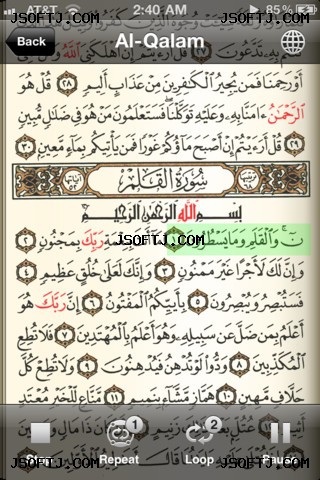 AT&T 2:40 AM 85%
JSOFTJ.COM JSOFTJ.COM
Back Al-Qalam
بِهِۦ تَدَّعُونَ ٢٧ قُلْ أَرَءَيْتُمْ إِنْ أَهْلَكَنِىَ ٱللَّهُ وَمَن مَّعِىَ
أَوْ رَحِمَنَا فَمَن يُجِيرُ ٱلْكَٰفِرِينَ مِنْ عَذَابٍ أَلِيمٍ ٢٨ قُلْ هُوَ
ٱلرَّحْمَٰنُ ءَامَنَّا بِهِۦ وَعَلَيْهِ تَوَكَّلْنَا فَسَتَعْلَمُونَ مَنْ هُوَ فِى ضَلَٰلٍ مُّبِينٍ
٢٩ قُلْ أَرَءَيْتُمْ إِنْ أَصْبَحَ مَآؤُكُمْ غَوْرًا فَمَن يَأْتِيكُم بِمَآءٍ مَّعِينٍۭ ٣٠
سُورَةُ القَلَمِ
بِسْمِ ٱللَّهِ ٱلرَّحْمَٰنِ ٱلرَّحِيمِ
نٓ وَٱلْقَلَمِ وَمَا يَسْطُرُونَ ١ مَآ أَنتَ بِنِعْمَةِ رَبِّكَ بِمَجْنُونٍ ٢
JSOFTJ.COM
وَإِنَّ لَكَ لَأَجْرًا غَيْرَ مَمْنُونٍ ٣ وَإِنَّكَ لَعَلَىٰ خُلُقٍ عَظِيمٍ ٤
فَسَتُبْصِرُ وَيُبْصِرُونَ ٥ بِأَييِّكُمُ ٱلْمَفْتُونُ ٦ إِنَّ رَبَّكَ هُوَ
أَعْلَمُ بِمَن ضَلَّ عَن سَبِيلِهِۦ وَهُوَ أَعْلَمُ بِٱلْمُهْتَدِينَ ٧ فَلَا تُطِعِ
ٱلْمُكَذِّبِينَ ٨ وَدُّوا۟ لَوْ تُدْهِنُ فَيُدْهِنُونَ ٩ وَلَا تُطِعْ كُلَّ
حَلَّافٍ مَّهِينٍ ١٠ هَمَّازٍ مَّشَّآءٍۭ بِنَمِيمٍ ١١ مَّنَّاعٍ لِّلْخَيْرِ مُعْتَدٍ
1 2
Stop Repeat Loop Pause
JSOFTJ.COM JSOFTJ.COM